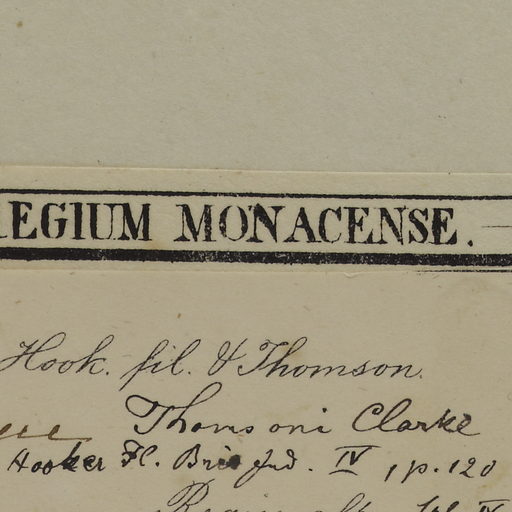 REGIUM MONACENSE.
Hook. fil. & Thomson.
Thomsoni Clarke
Hooker Fl. Brit Ind. IV, p. 120